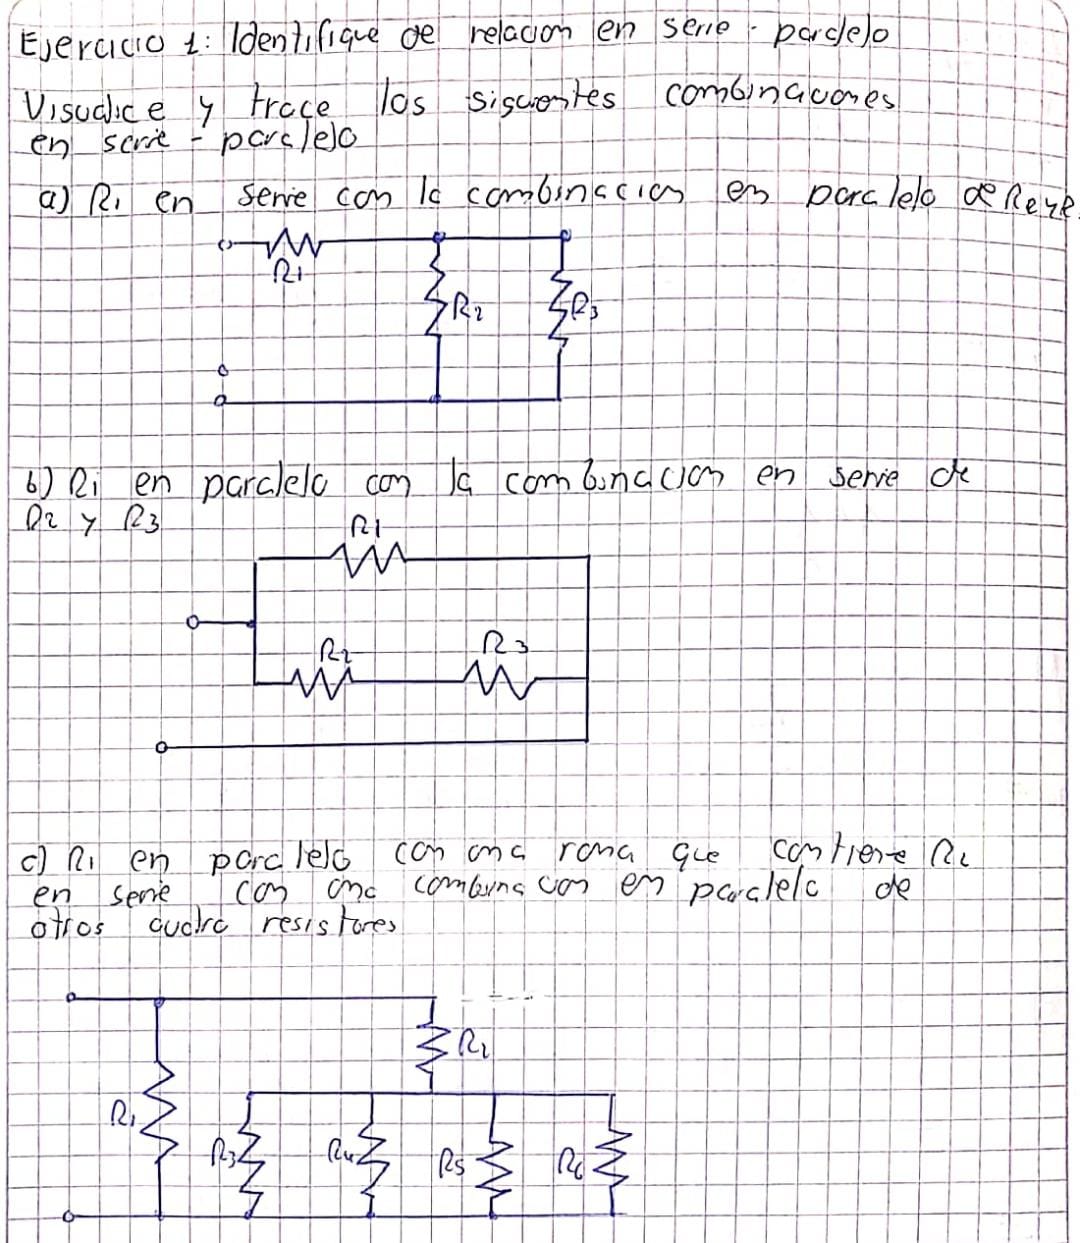 Ejercicio 1: Identifique de relacion en serie - paralelo
Visualice y trace las siguientes combinaciones
en serie - paralelo
a) R1 en serie con la combinacion en paralelo de R2 y R
R1
R2
R3
b) R1 en paralelo con la combinacion en serie de
R2 y R3
R1
R2
R3
c) R1 en paralelo con una rama que contiene R2
en serie con una combinacion en paralelo de
otros cuatro resistores
R2
R1
R3
R4
R5
R6